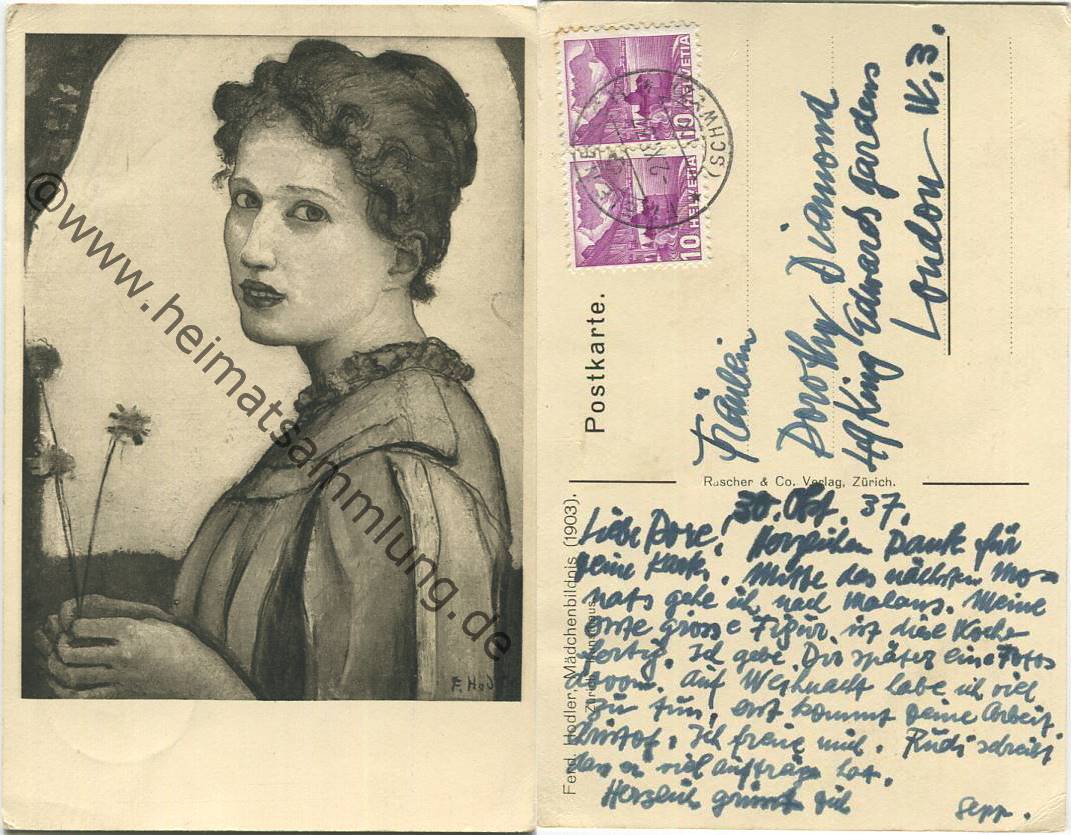 ©www.heimatsammlung.de
F. Hod
HELVETIA 10
HELVETIA 10
(SCHWYZ)
Postkarte.
Fräulein
Dorothy Diamond
49 King Edwards gardens
London W.3.
Rascher & Co. Verlag, Zürich.
Ferd. Hodler, Mädchenbildnis (1903).
Zürich, Kunsthaus
30. Okt. 37.
Liebe Dore, Herzlichen Dank für
Deine Karte. Mitte des nächsten Mo-
nats gehe ich nach Malans. Meine
erste grosse Figur ist diese Woche
fertig. Ich gebe Dir später eine Fotos
davon. Auf Weihnacht habe ich viel
zu tun, erst kommt deine Arbeit
Ich freue mich. Rudi schreibt
dass er viel aufträge hat.
Herzlich grüsst dich
Sepp.